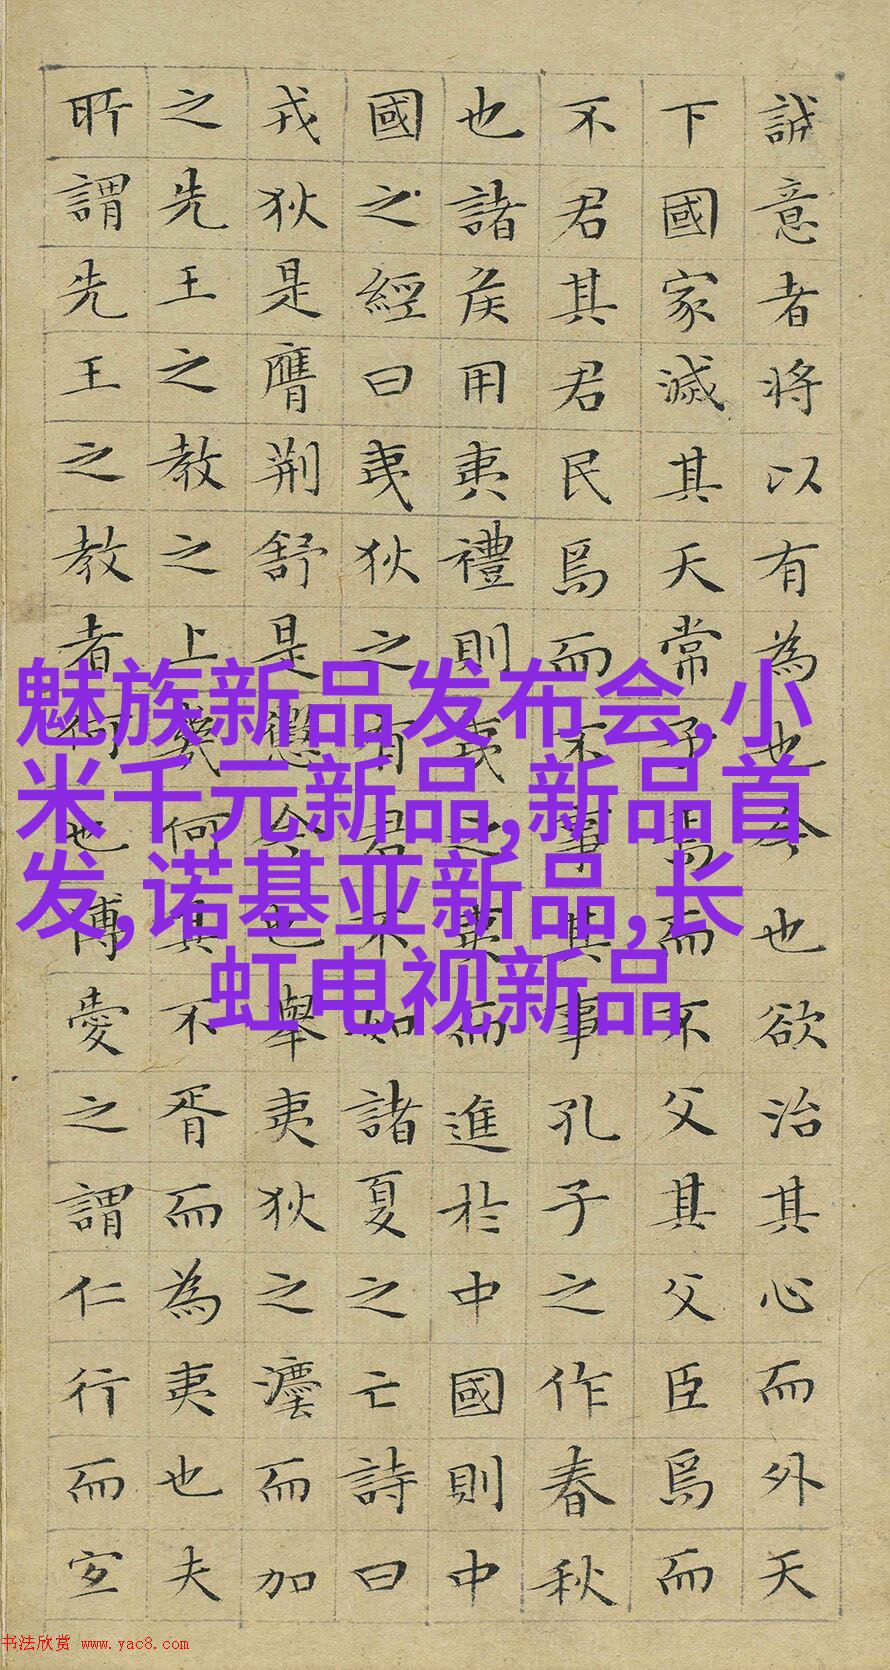 誠意者将以有為也今也欲治其心而外天
下國家滅其天常子焉而不父其父臣焉而
不君其君民焉而不事其事孔子之作春秋
也諸侯用夷禮則夷之夷而進於中國則中
國之經曰夷狄之有君不如諸夏之亡詩曰
戎狄是膺荆舒是懲今也舉夷狄之灋而加
之先王之教之上幾何其不胥而為夷也夫
所謂先王之教者何也博愛之謂仁行而宜
魅族新品发布会,小
米千元新品,新品首
发,诺基亚新品,长
虹电视新品
书法欣赏 www.yac8.com